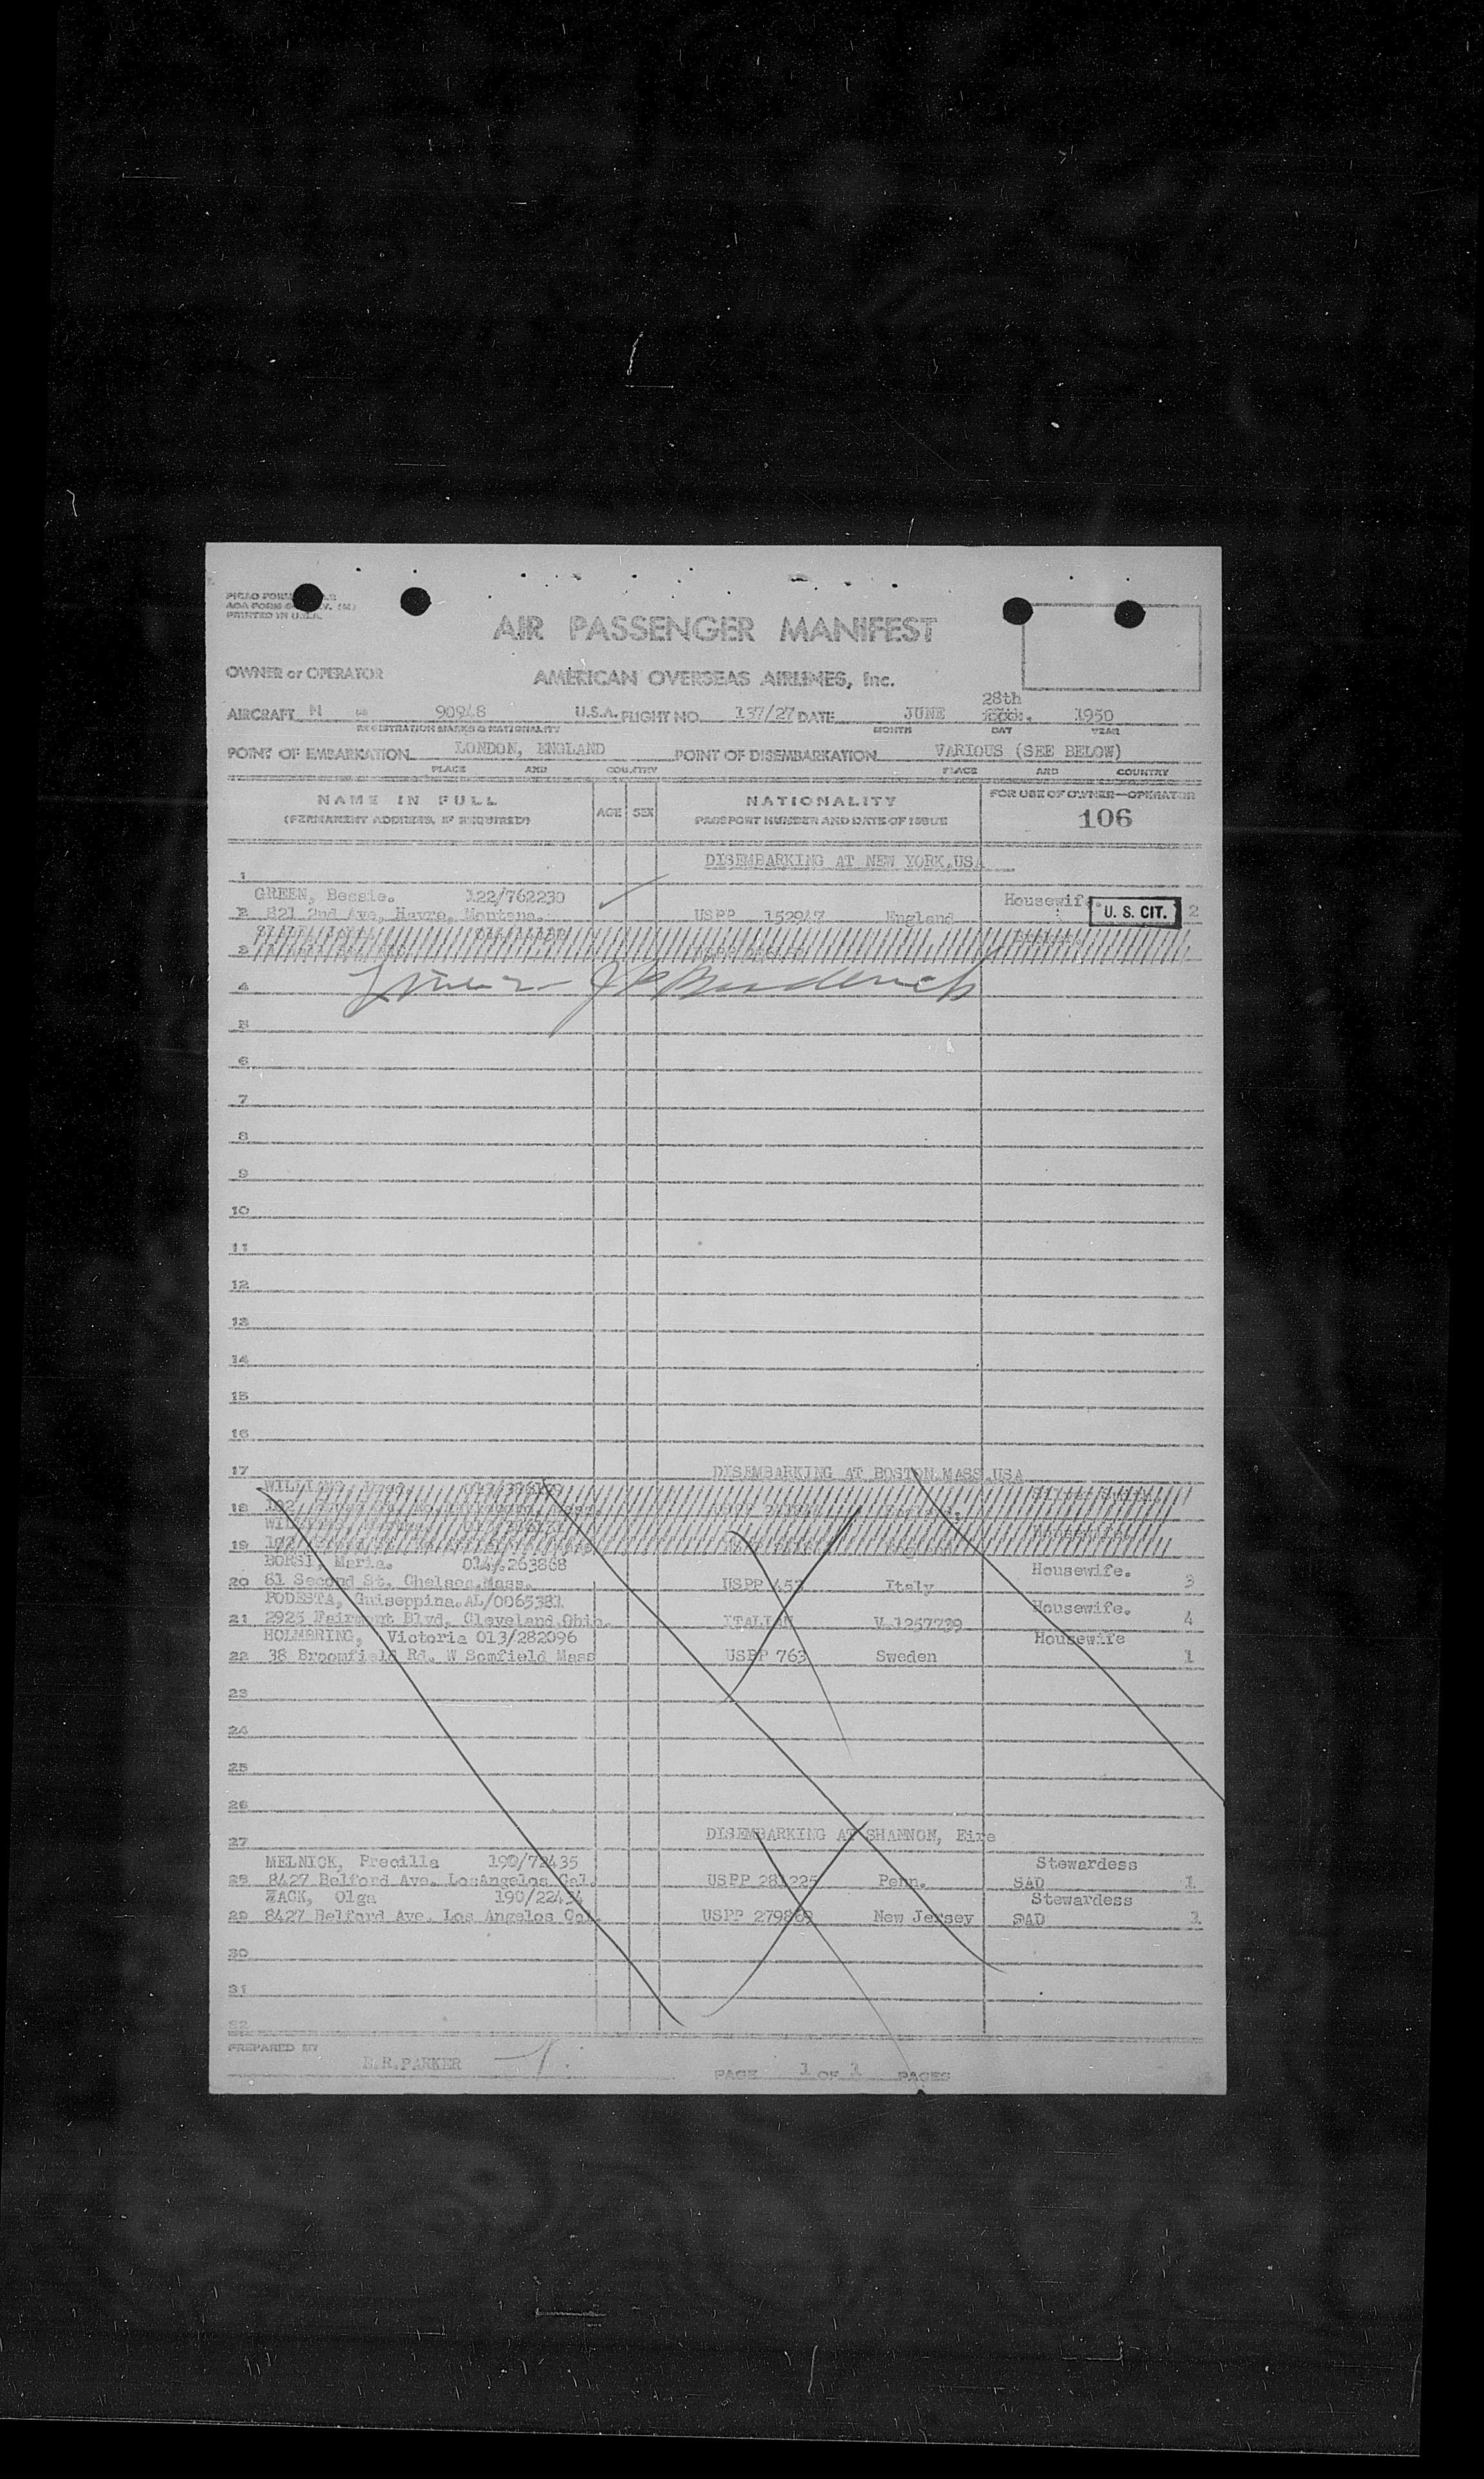 PRINTED IN U.S.A.
AIR PASSENGER MANIFEST
OWNER or OPERATOR AMERICAN OVERSEAS AIRLINES, Inc.
28th
AIRCRAFT N 90948 U.S.A. FLIGHT NO. 137/27 DATE JUNE 1950
REGISTRATION MARKS & NATIONALITY MONTH DAY YEAR
POINT OF EMBARKATION LONDON, ENGLAND POINT OF DISEMBARKATION VARIOUS (SEE BELOW)
PLACE AND COUNTRY PLACE AND COUNTRY
NAME IN FULL AGE SEX NATIONALITY FOR USE OF OWNER—OPERATOR
(PERMANENT ADDRESS, IF REQUIRED) PASSPORT NUMBER AND DATE OF ISSUE 106
DISEMBARKING AT NEW YORK,USA
1
GREEN, Bessie. 122/762230 Housewife.
2 821 2nd Ave, Havre, Montana. USPP 152947 England U. S. CIT. 2
3
4
5
6
7
8
9
10
11
12
13
14
15
16
17 DISEMBARKING AT BOSTON,MASS.USA
WILLIAMS,
18
19
BORSI, Maria. 014/.263868 Housewife.
20 81 Second St, Chelsea,Mass. USPP 453 Italy 3
PODESTA, Guiseppina.AL/0065381 Housewife.
21 2925 Fairmont Blvd, Cleveland,Ohio. ITALIAN V.1257739 4
HOLMBRING, Victoria 013/282096 Housewife
22 38 Broomfield Rd. W Somfield Mass USPP 763 Sweden 1
23
24
25
26
27 DISEMBARKING AT SHANNON, Eire
MELNICK, Precilla 190/72435 Stewardess
28 8427 Belford Ave. LosAngelos Cal. USPP 281225 Penn. SAD 1
ZACK, Olga 190/22434 Stewardess
29 8427 Belford Ave. Los Angelos Cal. USPP 279869 New Jersey SAD 1
30
31
32
PREPARED BY B.R.PARKER PAGE 1 OF 1 PAGES